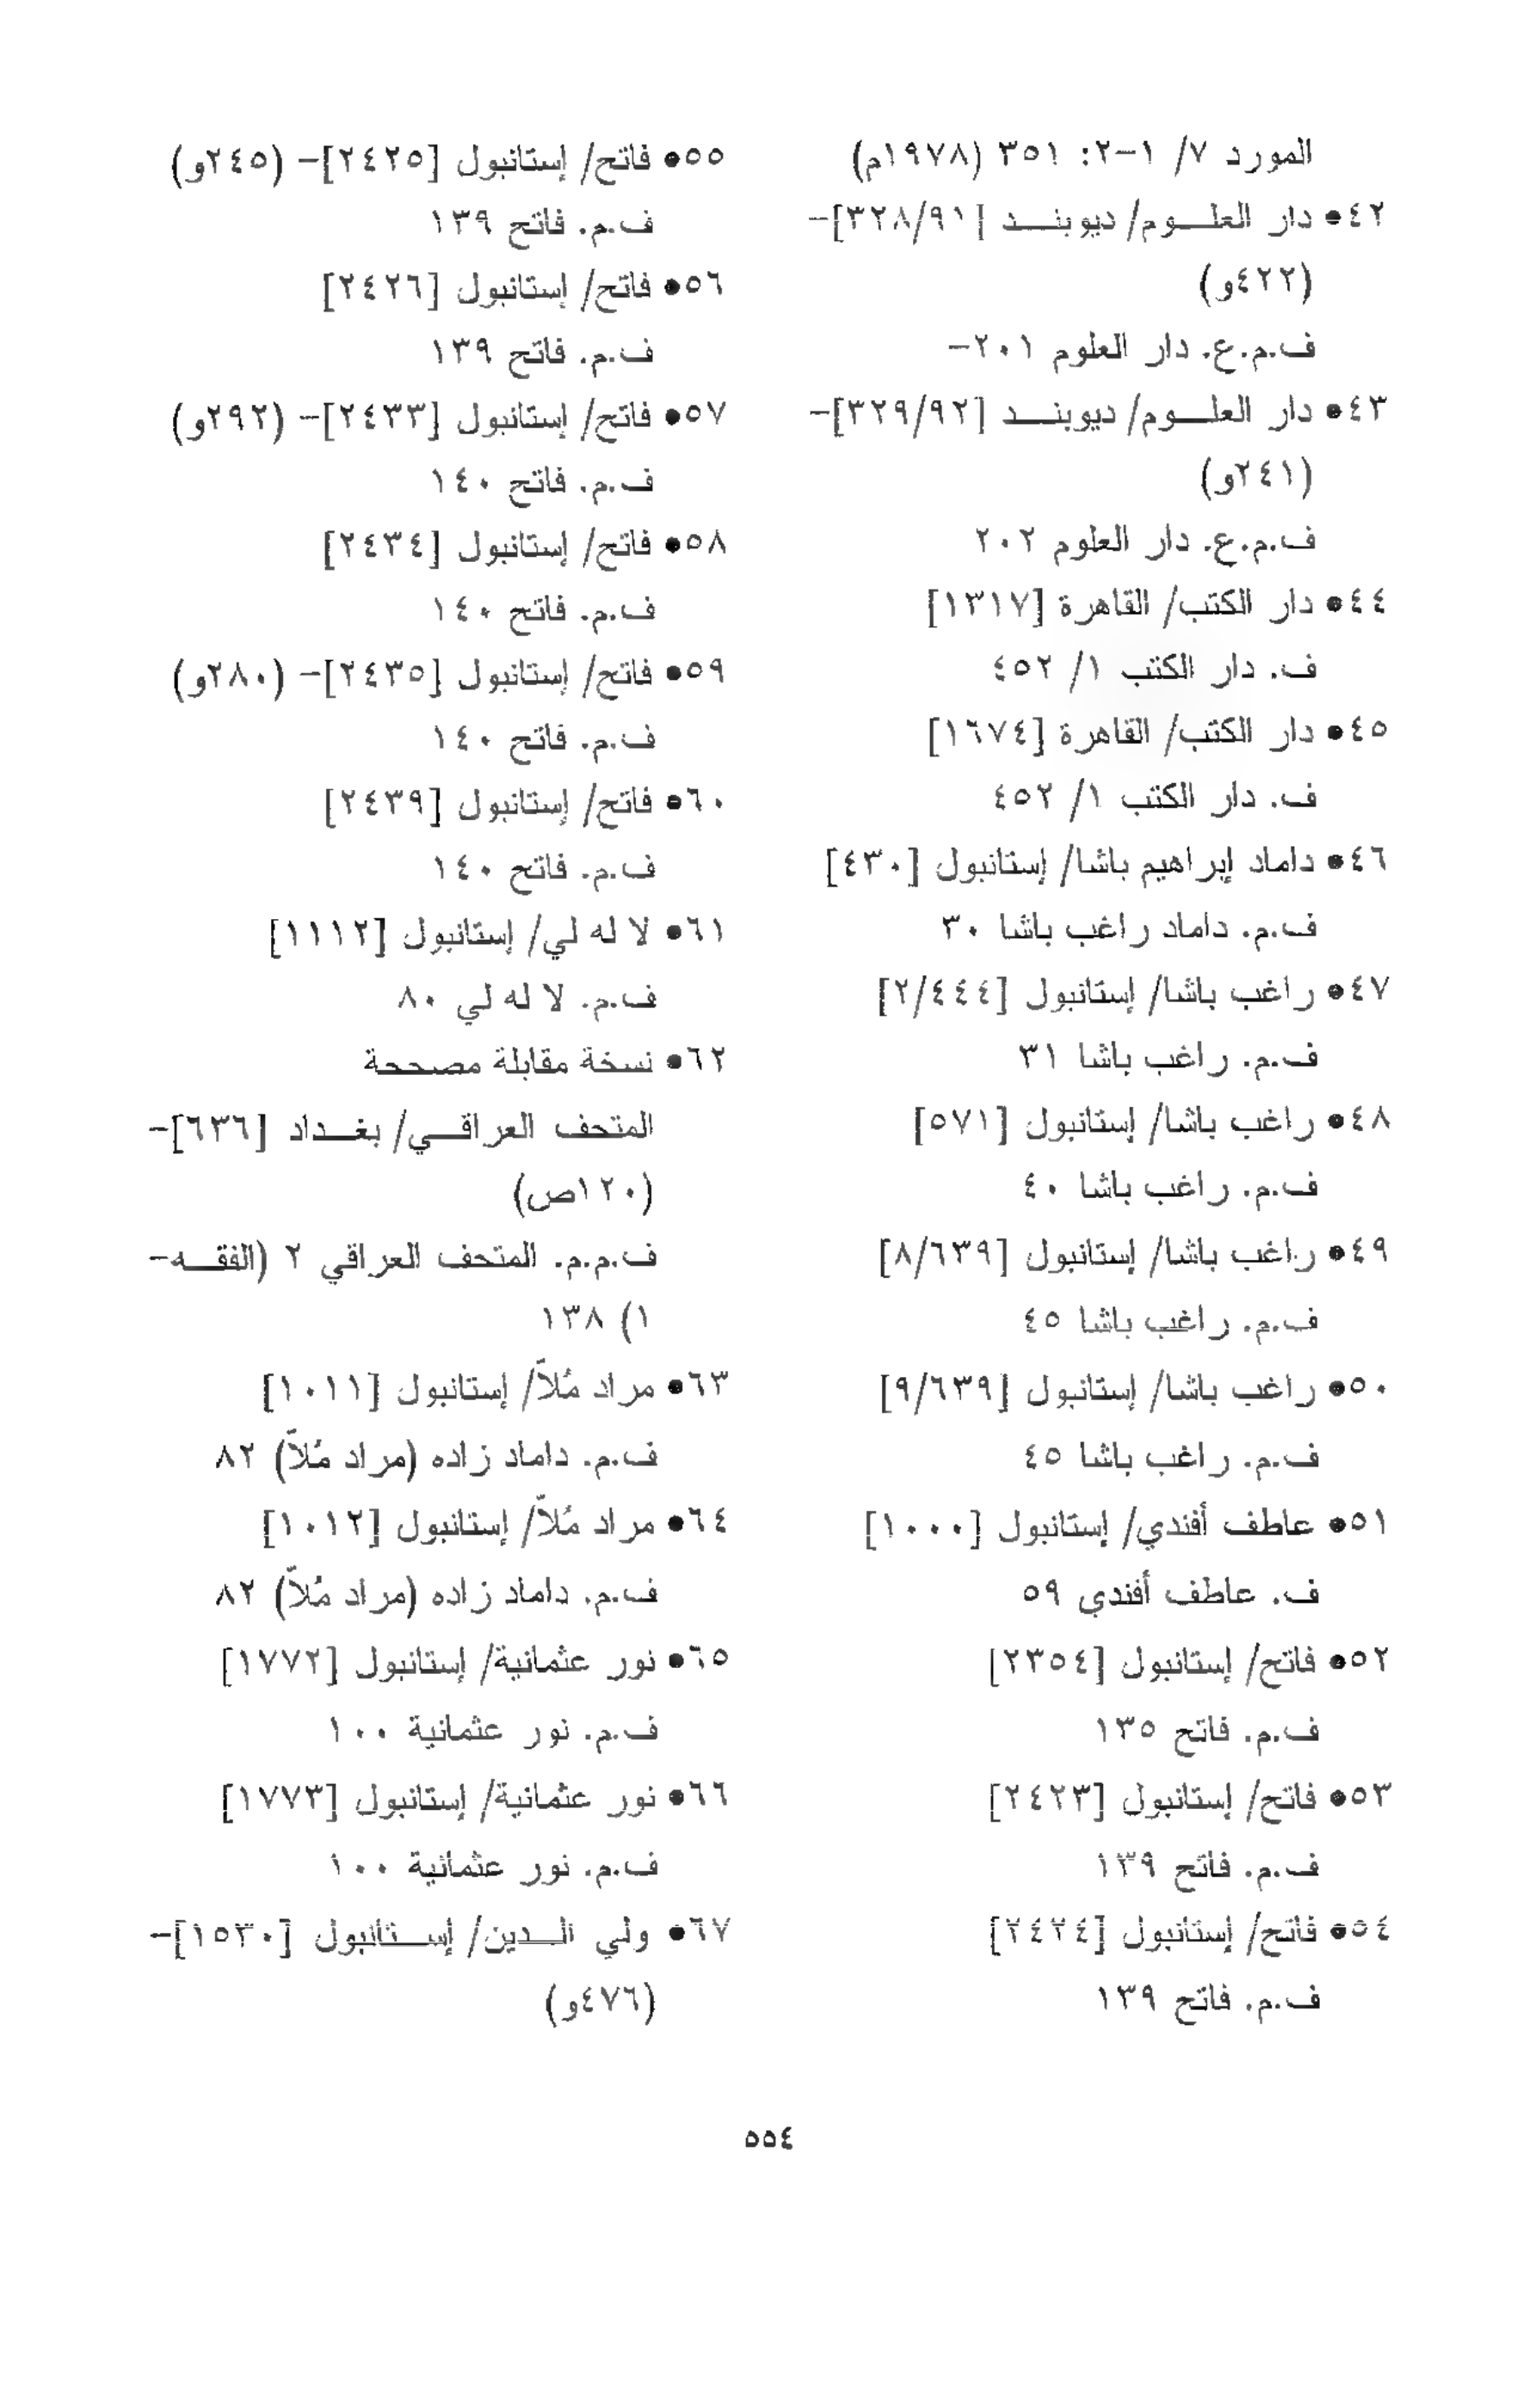 المورد ٧/ ١-٢: ٣٥١ (١٩٧٨م)
٤٢● دار العلـــوم/ ديوبنـــد [٣٢٨/٩١]-
(٤٢٢و)
ف.م.ع. دار العلوم ٢٠١-
٤٣● دار العلـــوم/ ديوبنـــد [٣٢٩/٩٢]-
(٢٤١و)
ف.م.ع. دار العلوم ٢٠٢
٤٤● دار الكتب/ القاهرة [١٣١٧]
ف. دار الكتب ١/ ٤٥٢
٤٥● دار الكتب/ القاهرة [١٦٧٤]
ف. دار الكتب ١/ ٤٥٢
٤٦● داماد إبراهيم باشا/ إستانبول [٤٣٠]
ف.م. داماد راغب باشا ٣٠
٤٧● راغب باشا/ إستانبول [٢/٤٤٤]
ف.م. راغب باشا ٣١
٤٨● راغب باشا/ إستانبول [٥٧١]
ف.م. راغب باشا ٤٠
٤٩● راغب باشا/ إستانبول [٨/٦٣٩]
ف.م. راغب باشا ٤٥
٥٠● راغب باشا/ إستانبول [٩/٦٣٩]
ف.م. راغب باشا ٤٥
٥١● عاطف أفندي/ إستانبول [١٠٠٠]
ف. عاطف أفندي ٥٩
٥٢● فاتح/ إستانبول [٢٣٥٤]
ف.م. فاتح ١٣٥
٥٣● فاتح/ إستانبول [٢٤٢٣]
ف.م. فاتح ١٣٩
٥٤● فاتح/ إستانبول [٢٤٢٤]
ف.م. فاتح ١٣٩
٥٥● فاتح/ إستانبول [٢٤٢٥]- (٢٤٥و)
ف.م. فاتح ١٣٩
٥٦● فاتح/ إستانبول [٢٤٢٦]
ف.م. فاتح ١٣٩
٥٧● فاتح/ إستانبول [٢٤٣٣]- (٢٩٢و)
ف.م. فاتح ١٤٠
٥٨● فاتح/ إستانبول [٢٤٣٤]
ف.م. فاتح ١٤٠
٥٩● فاتح/ إستانبول [٢٤٣٥]- (٢٨٠و)
ف.م. فاتح ١٤٠
٦٠● فاتح/ إستانبول [٢٤٣٩]
ف.م. فاتح ١٤٠
٦١● لا له لي/ إستانبول [١١١٢]
ف.م. لا له لي ٨٠
٦٢● نسخة مقابلة مصححة
المتحف العراقـــي/ بغـــداد [٦٣٦]-
(١٢٠ص)
ف.م.م. المتحف العراقي ٢ (الفقـــه-
١) ١٣٨
٦٣● مراد مُلاّ/ إستانبول [١٠١١]
ف.م. داماد زاده (مراد مُلاّ) ٨٢
٦٤● مراد مُلاّ/ إستانبول [١٠١٢]
ف.م. داماد زاده (مراد مُلاّ) ٨٢
٦٥● نور عثمانية/ إستانبول [١٧٧٢]
ف.م. نور عثمانية ١٠٠
٦٦● نور عثمانية/ إستانبول [١٧٧٣]
ف.م. نور عثمانية ١٠٠
٦٧● ولي الـــدين/ إســـتانبول [١٥٣٠]-
(٤٧٦و)
٥٥٤